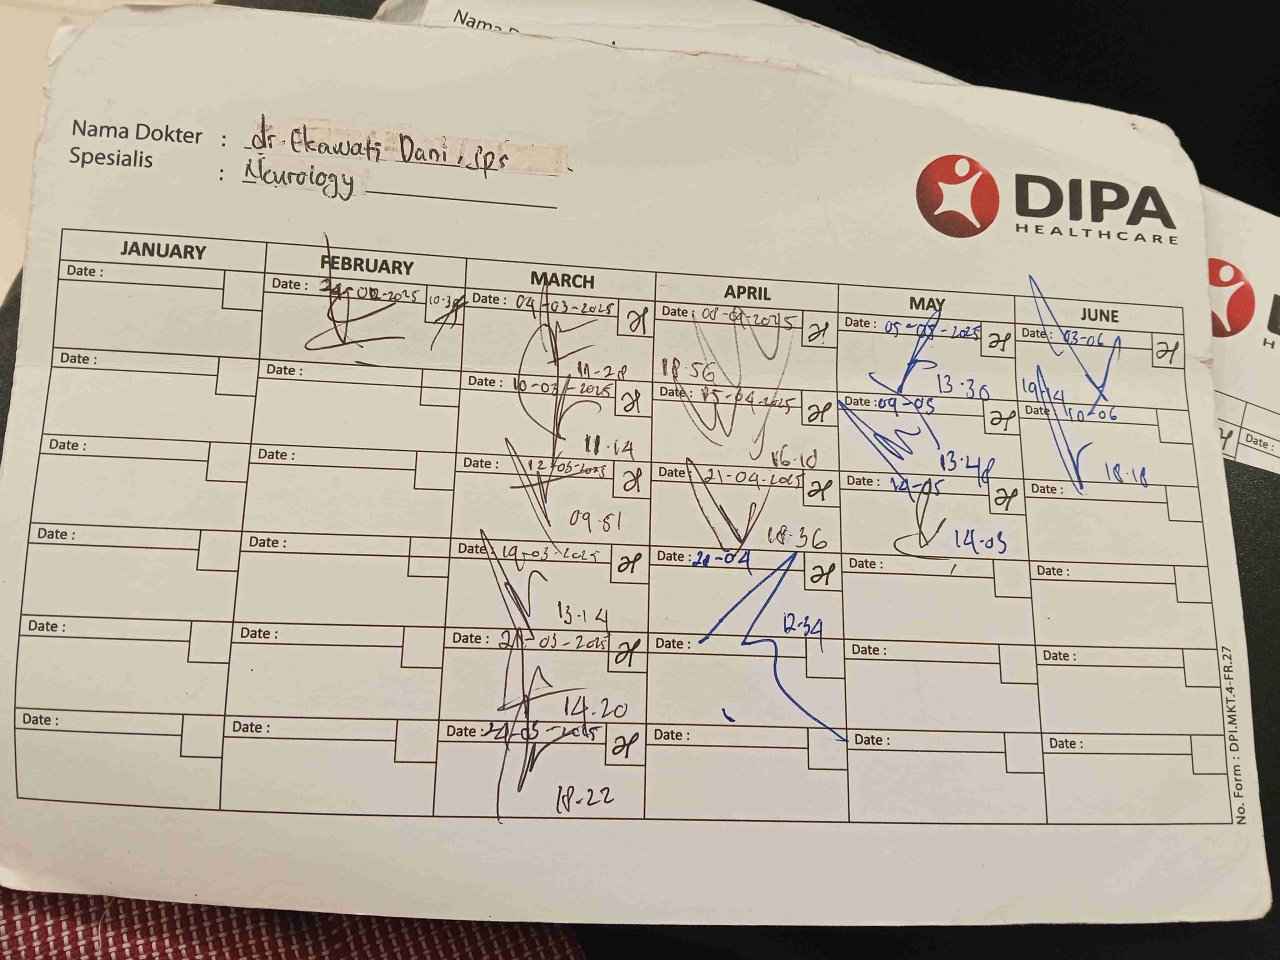 Nama D
Nama Dokter : dr. Ekawati Dani, Sps
Spesialis : Neurology
DIPA
HEALTHCARE
JANUARY FEBRUARY MARCH APRIL MAY JUNE
Date : Date : 02-2025 Date : 04-03-2025 Date : 08-04-2025 Date : 05-05-2025 Date : 03-06
11-28 18.56 13.30 19-14
Date : Date : Date : 10-03-2025 Date : 15-04-2025 Date : 09-05 Date : 10-06
11.14 16.10 13.48 18.18
Date : Date : Date : 12-03-2025 Date : 21-04-2025 Date : 14-05 Date :
09.51 18.36 14.03
Date : Date : Date : 19-03-2025 Date : Date : Date :
13.14 12.34
Date : Date : Date : 03-2025 Date : Date : Date :
14.20
Date : Date : Date : 03-2025 Date : Date : Date :
18-22
No. Form : DPI.MKT.4-FR.27
Date :